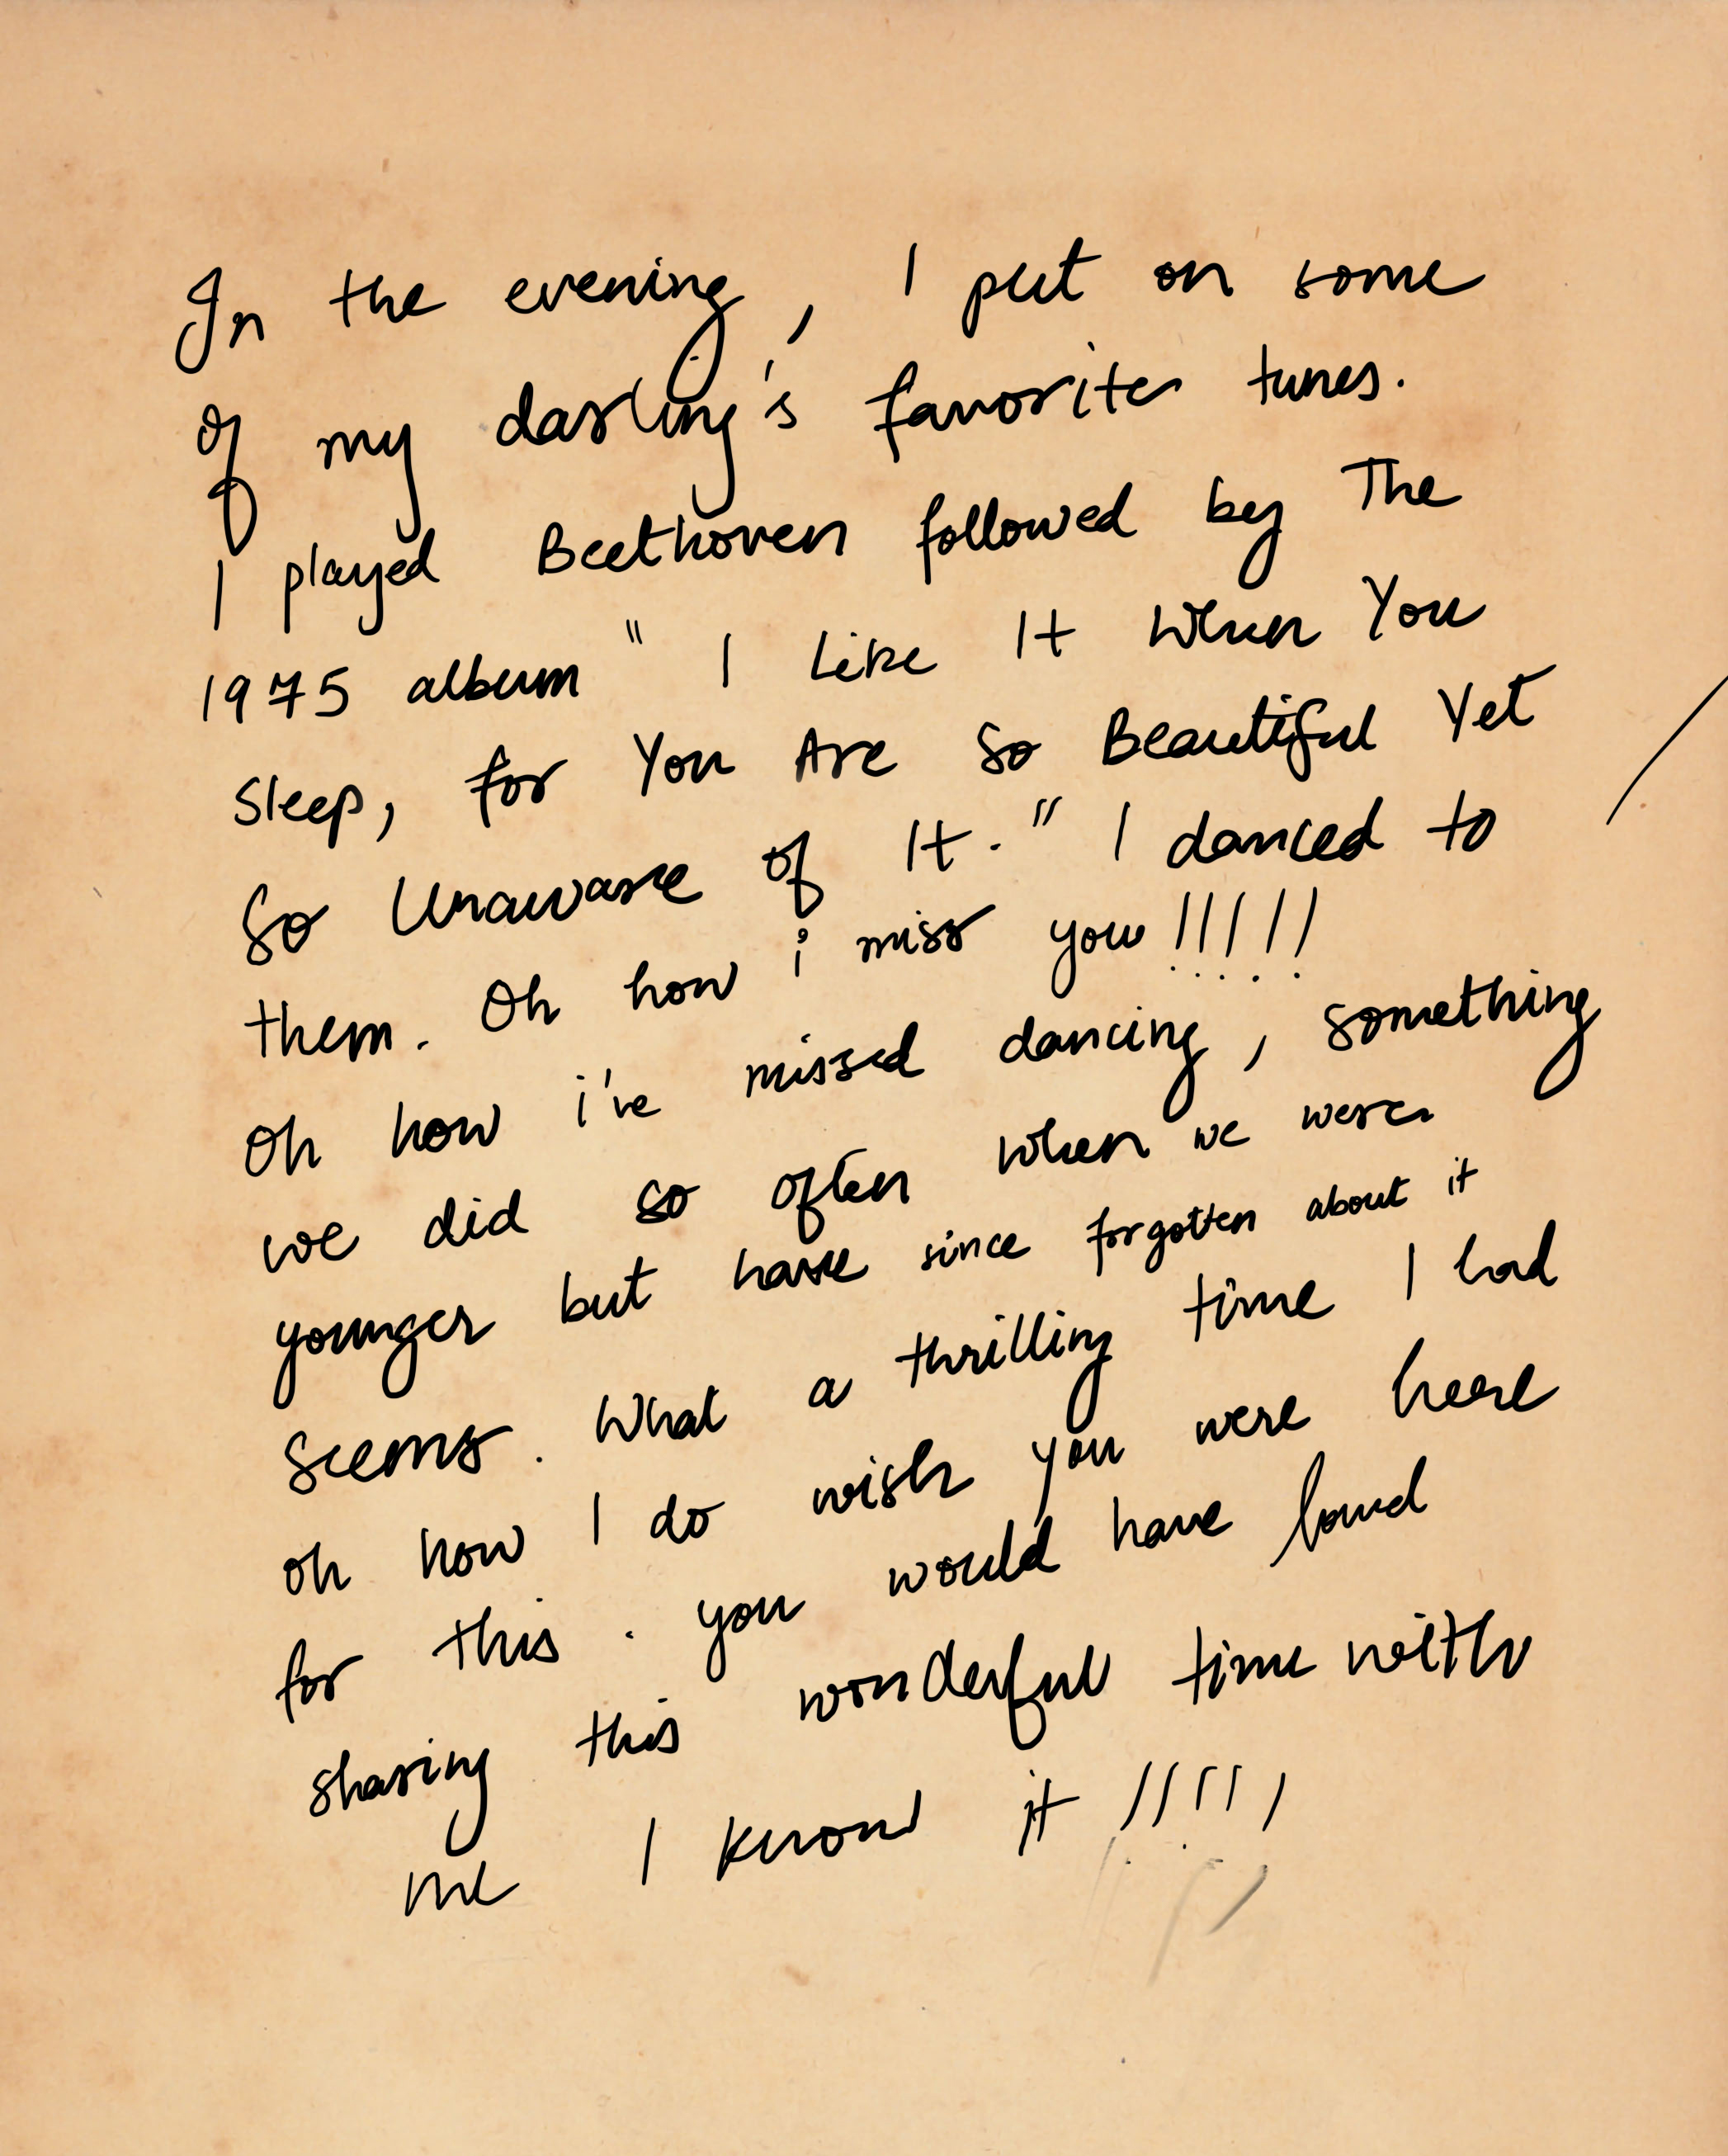 In the evening, I put on some
of my darling's favorite tunes.
I played Beethoven followed by The
1975 album "I Like It When You
Sleep, for You Are So Beautiful Yet
So Unaware of It." I danced to
them. Oh how i miss you!!!!!
Oh how i've missed dancing, something
we did so often when we were
younger but have since forgotten about it
seems. What a thrilling time I had
oh how I do wish you were here
for this. you would have loved
sharing this wonderful time with
me I know it !!!!!